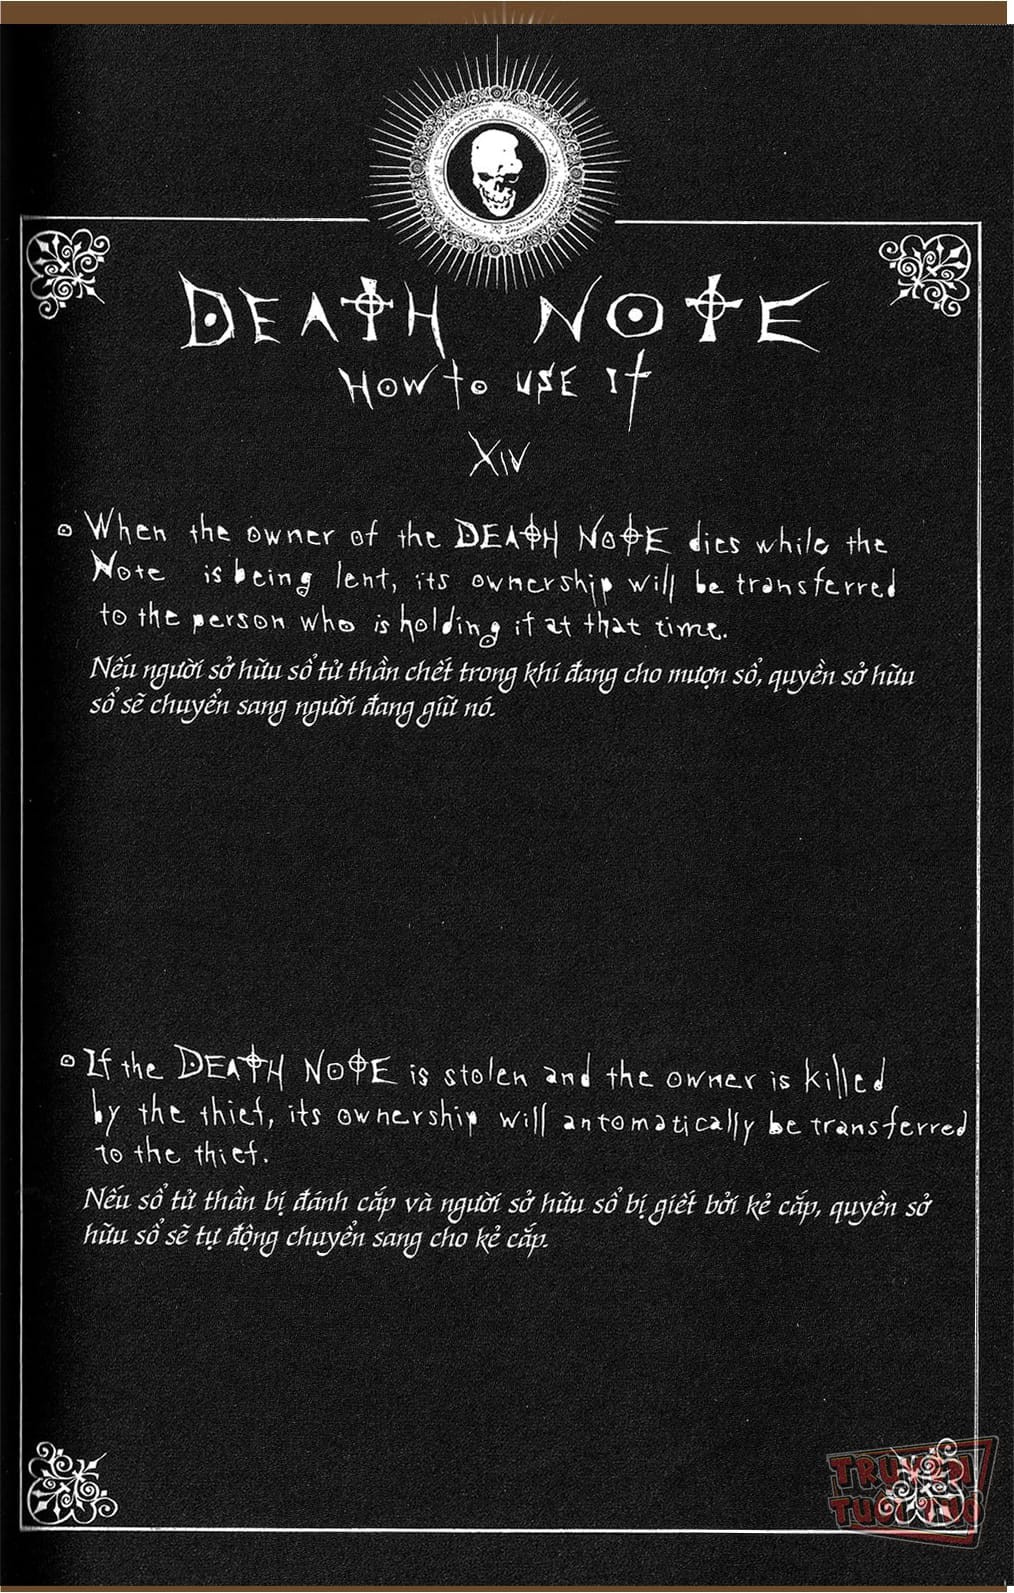 DEATH NOTE
HOW to USE It
XIV
When the owner of the DEATH NOTE dies while the
Note is being lent, its ownership will be transferred
to the person who is holding it at that time.
Nếu người sở hữu sổ tử thần chết trong khi đang cho mượn sổ, quyền sở hữu
sổ sẽ chuyển sang người đang giữ nó.
If the DEATH NOTE is stolen and the owner is killed
by the thief, its ownership will automatically be transferred
to the thief.
Nếu sổ tử thần bị đánh cắp và người sở hữu sổ bị giết bởi kẻ cắp, quyền sở
hữu sổ sẽ tự động chuyển sang cho kẻ cắp.
TUỔI THƠ